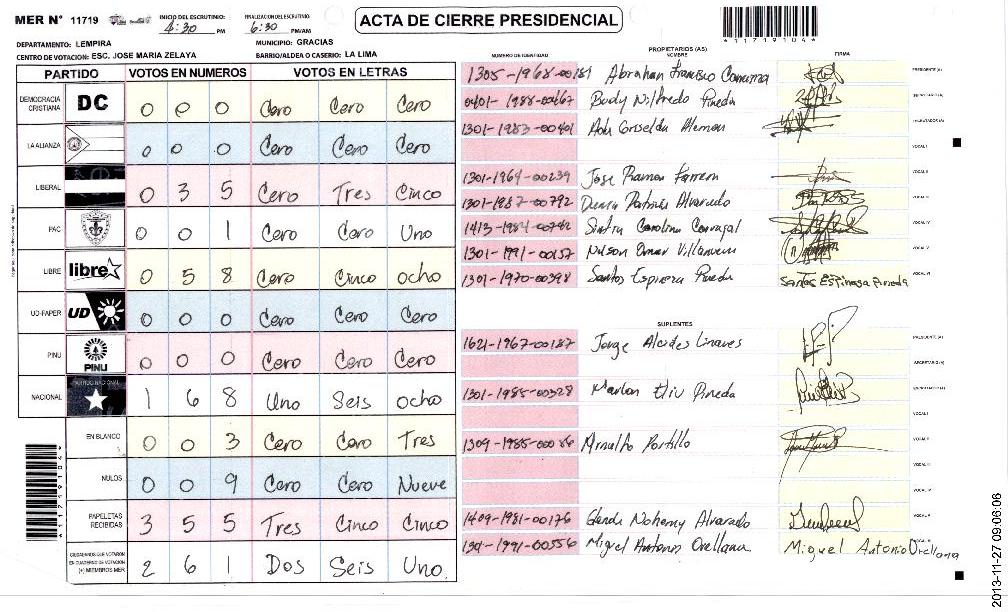 MER N° 11719
INICIO DEL ESCRUTINIO: 4:30 PM
FINALIZACION DEL ESCRUTINIO: 6:30 PM/AM
ACTA DE CIERRE PRESIDENCIAL
*11719104*
DEPARTAMENTO: LEMPIRA
MUNICIPIO: GRACIAS
CENTRO DE VOTACION: ESC. JOSE MARIA ZELAYA
BARRIO/ALDEA O CASERIO: LA LIMA
PARTIDO VOTOS EN NUMEROS VOTOS EN LETRAS
DEMOCRACIA CRISTIANA DC 0 0 0 Cero Cero Cero
LA ALIANZA 0 0 0 Cero Cero Cero
LIBERAL 0 3 5 Cero Tres Cinco
PAC 0 0 1 Cero Cero Uno
LIBRE libre 0 5 8 Cero Cinco ocho
UD-FAPER UD 0 0 0 Cero Cero Cero
PINU PINU 0 0 0 Cero Cero Cero
NACIONAL PARTIDO NACIONAL 1 6 8 Uno Seis ocho
EN BLANCO 0 0 3 Cero Cero Tres
NULOS 0 0 9 Cero Cero Nueve
PAPELETAS RECIBIDAS 3 5 5 Tres Cinco Cinco
CIUDADANOS QUE VOTARON EN CUADERNO DE VOTACION (+) MIEMBROS MER 2 6 1 Dos Seis Uno
*11719104*
PROPIETARIOS (AS)
NUMERO DE IDENTIDAD NOMBRE FIRMA
1305-1968-00189 Abrahan Francisco PRESIDENTE (A)
0401-1988-00667 Rudy Nilfredo Pineda SECRETARIO (A)
1301-1983-00401 Ada Griselda Aleman ESCRUTADOR (A)
VOCAL I
1301-1964-00239 Jose Ramon VOCAL II
1301-1987-00792 Alvarado VOCAL III
1413-1984-00742 Sintia Carolina Carvajal VOCAL IV
1301-1991-00157 Nelson Omar Villanueva VOCAL V
1301-1970-00398 Santos Espinoza Pineda Santos Espinosa Pineda VOCAL VI
SUPLENTES
1621-1967-00187 Jorge Alcides Linares PRESIDENTE (A)
SECRETARIO (A)
1301-1985-00328 Marlon Eliu Pineda ESCRUTADOR (A)
VOCAL I
1309-1985-00086 Arnulfo Portillo VOCAL II
VOCAL III
VOCAL IV
1409-1981-00176 Glenda Nohemy Alvarado VOCAL V
1301-1991-00556 Miguel Antonio Orellana Miguel Antonio Orellana
2013-11-27 09:06:06